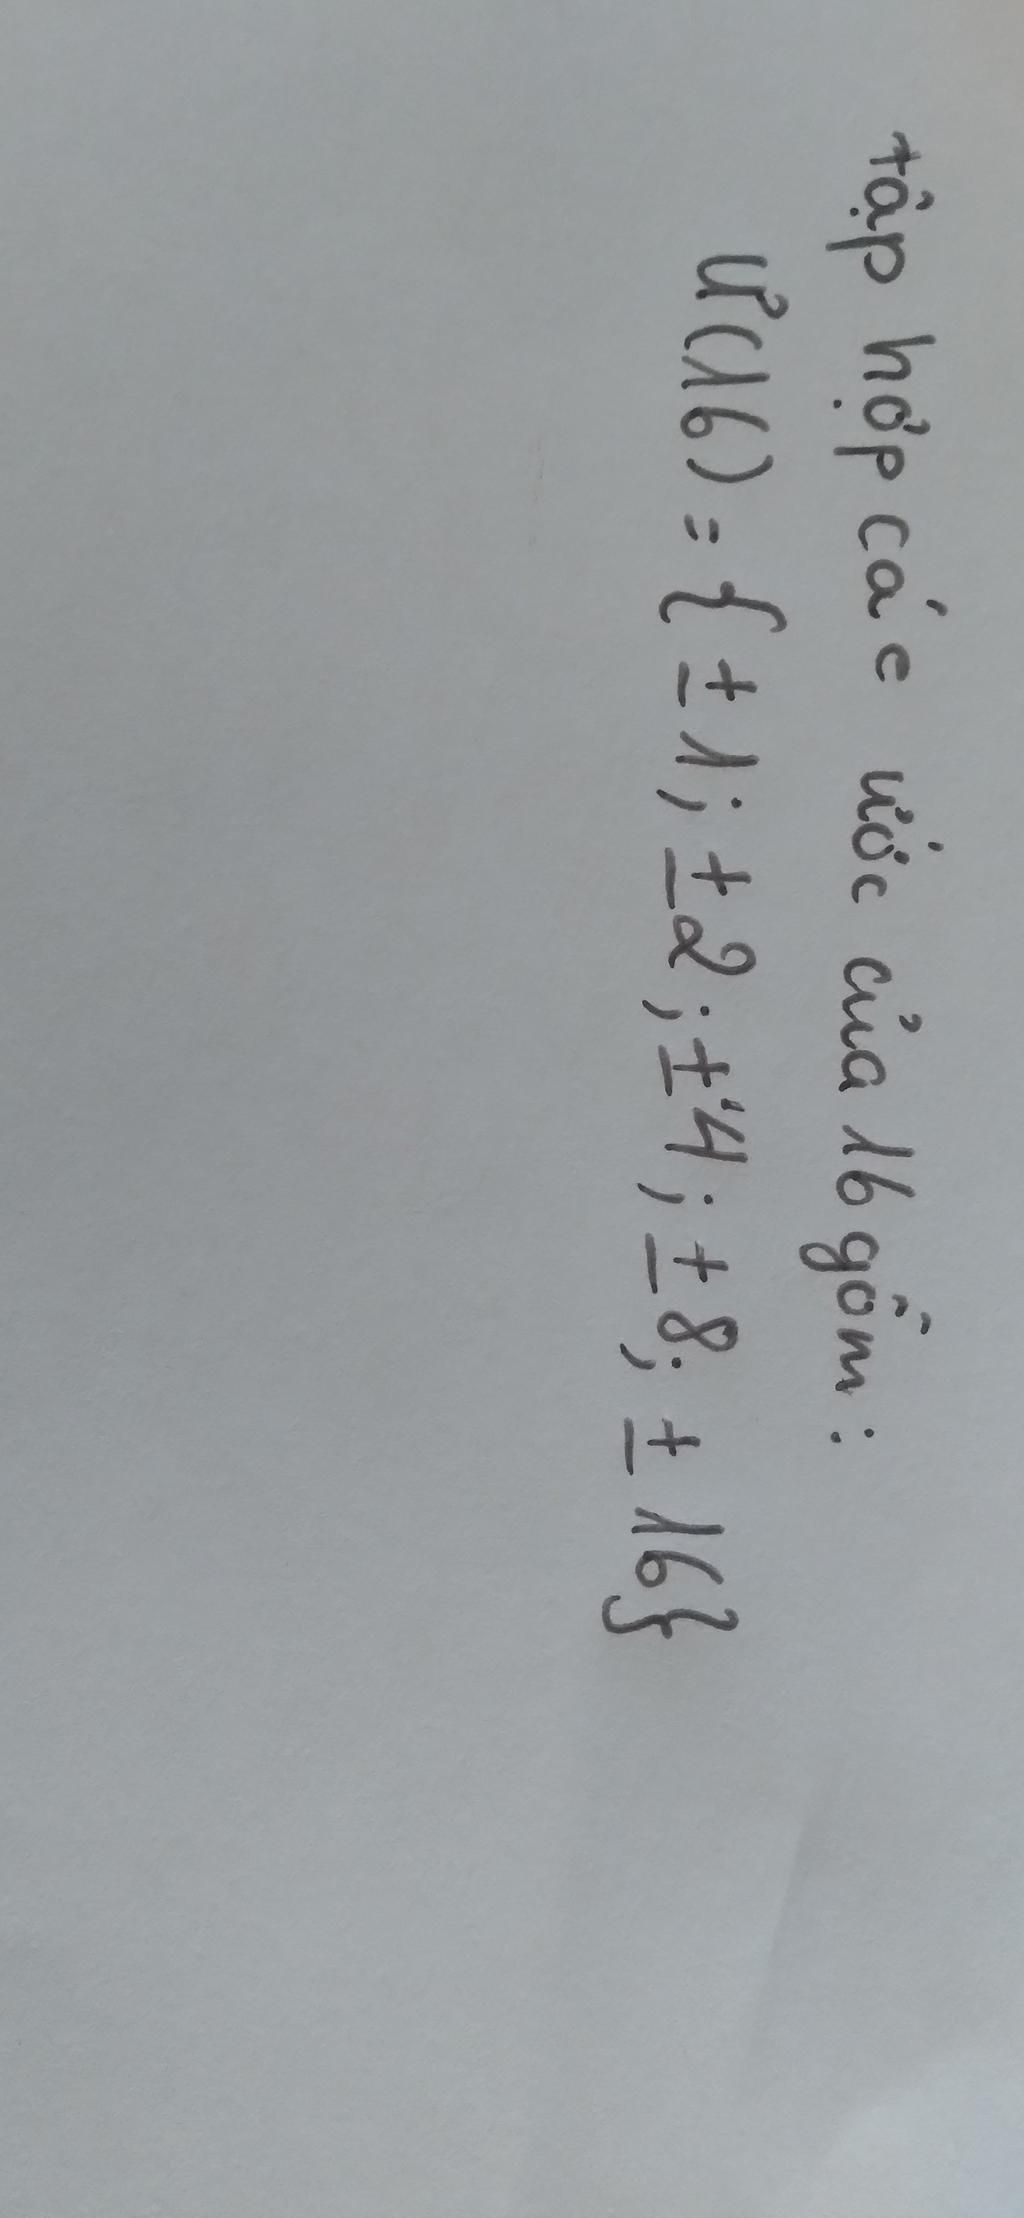 tập hợp các ước của 16 gồm:
Ư(16) = {±1; ±2; ±4; ±8; ±16}